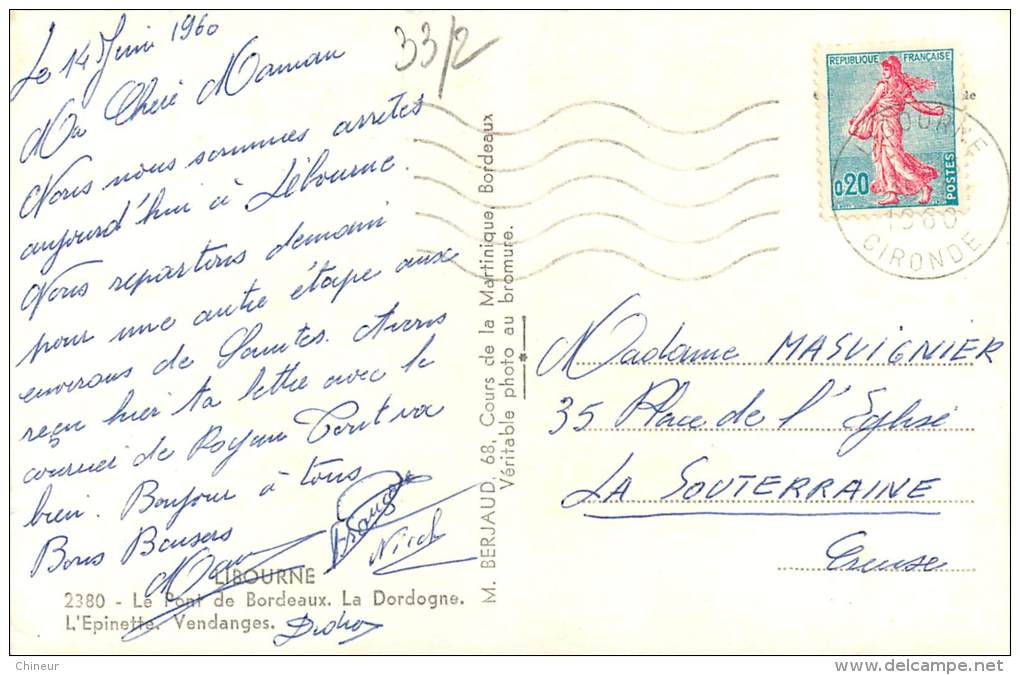 Le 14 Juin 1960
33/2
Ma Chère Maman
Nous nous sommes arretés
aujourd'hui à Libourne.
Nous repartons demain
pour une autre étape aux
environs de Saintes. Avons
reçu hier ta lettre avec le
courrier de Royan Tout va
bien. Bonjour à tous
Bons Baisers
Nicole
LIBOURNE
2380 - Le Pont de Bordeaux. La Dordogne.
L'Epinette. Vendanges.
M. BERJAUD, 68, Cours de la Martinique, Bordeaux
Véritable photo au bromure.
REPUBLIQUE FRANÇAISE
0,20
POSTES
LIBOURNE
1960
GIRONDE
Madame MASVIGNIER
35 Place de l'Eglise
LA SOUTERRAINE
Creuse
Chineur
delcampe.net